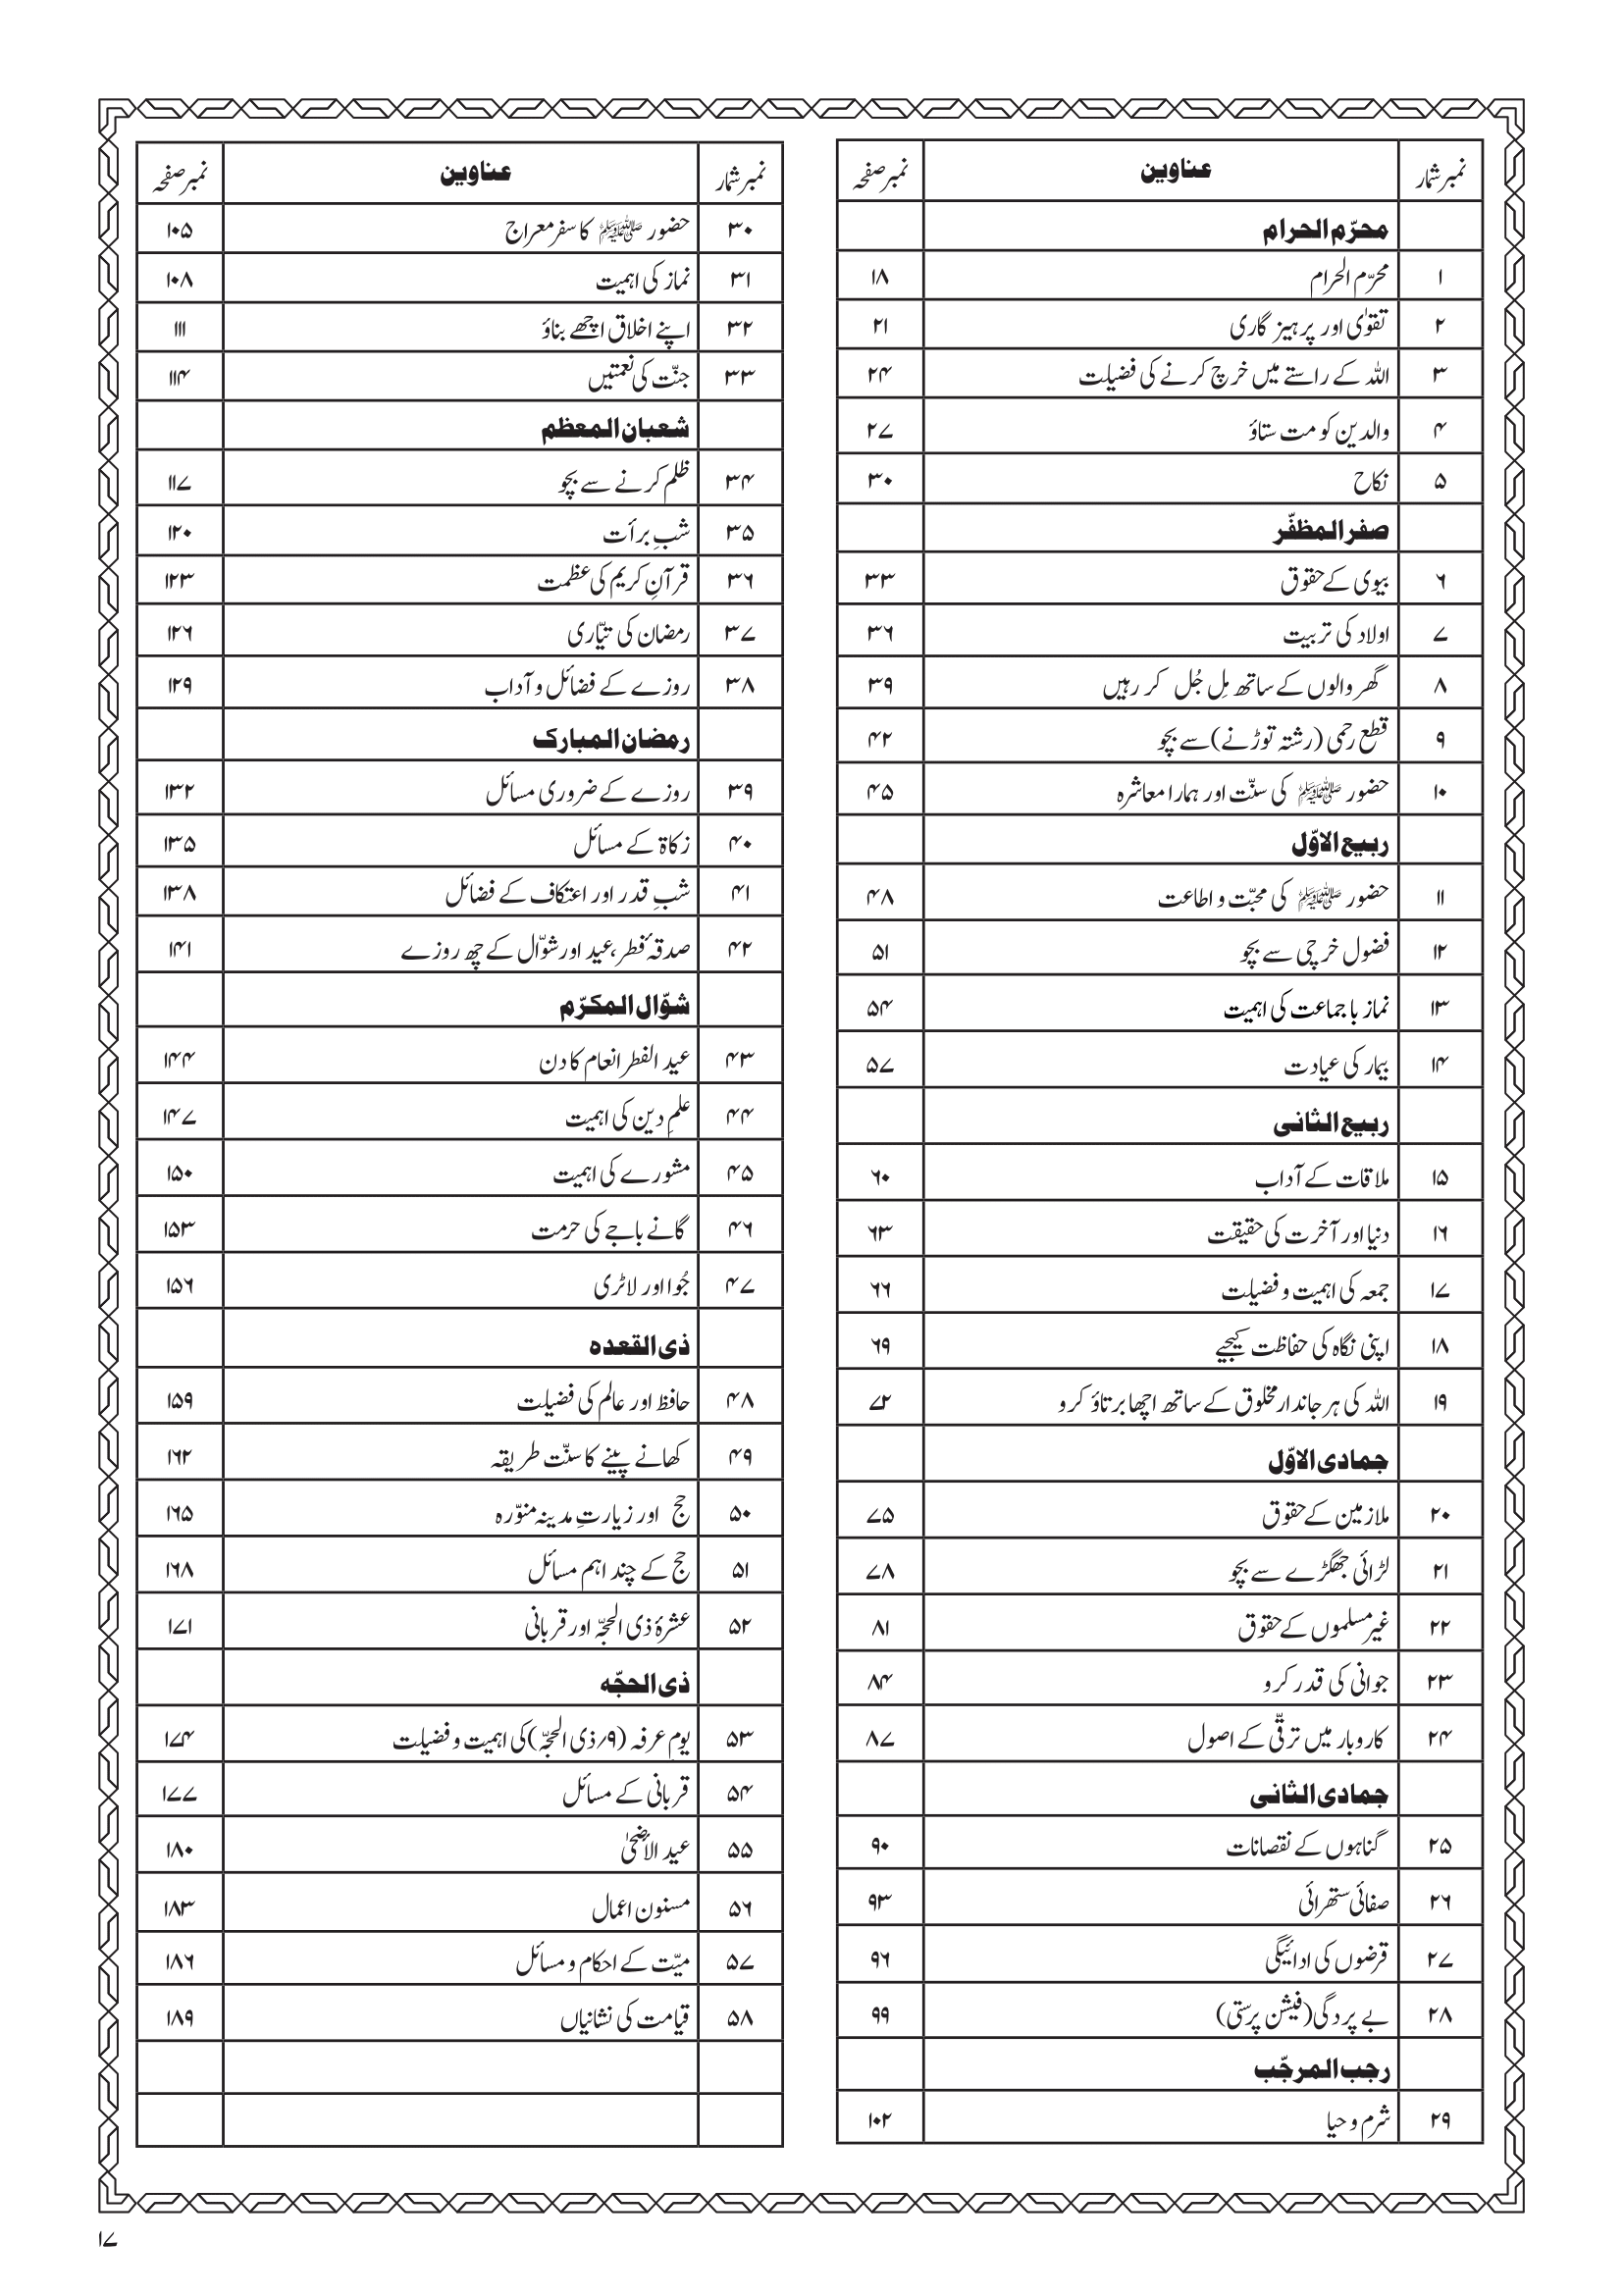 نمبر شمار عناوین نمبر صفحہ
محرّم الحرام
۱ محرّم الحرام ۱۸
۲ تقوٰی اور پرہیز گاری ۲۱
۳ اللہ کے راستے میں خرچ کرنے کی فضیلت ۲۴
۴ والدین کو مت ستاؤ ۲۷
۵ نکاح ۳۰
صفر المظفّر
۶ بیوی کے حقوق ۳۳
۷ اولاد کی تربیت ۳۶
۸ گھر والوں کے ساتھ مِل جُل کر رہیں ۳۹
۹ قطع رحمی (رشتہ توڑنے) سے بچو ۴۲
۱۰ حضور ﷺ کی سنّت اور ہمارا معاشرہ ۴۵
ربیع الاوّل
۱۱ حضور ﷺ کی محبّت و اطاعت ۴۸
۱۲ فضول خرچی سے بچو ۵۱
۱۳ نماز با جماعت کی اہمیت ۵۴
۱۴ بیمار کی عیادت ۵۷
ربیع الثانی
۱۵ ملاقات کے آداب ۶۰
۱۶ دنیا اور آخرت کی حقیقت ۶۳
۱۷ جمعہ کی اہمیت و فضیلت ۶۶
۱۸ اپنی نگاہ کی حفاظت کیجیے ۶۹
۱۹ اللہ کی ہر جاندار مخلوق کے ساتھ اچھا برتاؤ کرو ۷۲
جمادی الاوّل
۲۰ ملازمین کے حقوق ۷۵
۲۱ لڑائی جھگڑے سے بچو ۷۸
۲۲ غیر مسلموں کے حقوق ۸۱
۲۳ جوانی کی قدر کرو ۸۴
۲۴ کاروبار میں ترقّی کے اصول ۸۷
جمادی الثانی
۲۵ گناہوں کے نقصانات ۹۰
۲۶ صفائی ستھرائی ۹۳
۲۷ قرضوں کی ادائیگی ۹۶
۲۸ بے پردگی (فیشن پرستی) ۹۹
رجب المرجّب
۲۹ شرم و حیا ۱۰۲
نمبر شمار عناوین نمبر صفحہ
۳۰ حضور ﷺ کا سفر معراج ۱۰۵
۳۱ نماز کی اہمیت ۱۰۸
۳۲ اپنے اخلاق اچھے بناؤ ۱۱۱
۳۳ جنّت کی نعمتیں ۱۱۴
شعبان المعظم
۳۴ ظلم کرنے سے بچو ۱۱۷
۳۵ شبِ برأت ۱۲۰
۳۶ قرآنِ کریم کی عظمت ۱۲۳
۳۷ رمضان کی تیّاری ۱۲۶
۳۸ روزے کے فضائل و آداب ۱۲۹
رمضان المبارک
۳۹ روزے کے ضروری مسائل ۱۳۲
۴۰ زکاۃ کے مسائل ۱۳۵
۴۱ شبِ قدر اور اعتکاف کے فضائل ۱۳۸
۴۲ صدقۂ فطر، عید اور شوّال کے چھ روزے ۱۴۱
شوّال المکرّم
۴۳ عید الفطر انعام کا دن ۱۴۴
۴۴ علمِ دین کی اہمیت ۱۴۷
۴۵ مشورے کی اہمیت ۱۵۰
۴۶ گانے باجے کی حرمت ۱۵۳
۴۷ جُوا اور لاٹری ۱۵۶
ذی القعدہ
۴۸ حافظ اور عالم کی فضیلت ۱۵۹
۴۹ کھانے پینے کا سنّت طریقہ ۱۶۲
۵۰ حج اور زیارتِ مدینہ منوّرہ ۱۶۵
۵۱ حج کے چند اہم مسائل ۱۶۸
۵۲ عشرۂ ذی الحجّہ اور قربانی ۱۷۱
ذی الحجّہ
۵۳ یوم عرفہ (۹؍ ذی الحجّہ) کی اہمیت و فضیلت ۱۷۴
۵۴ قربانی کے مسائل ۱۷۷
۵۵ عید الاضحیٰ ۱۸۰
۵۶ مسنون اعمال ۱۸۳
۵۷ میّت کے احکام و مسائل ۱۸۶
۵۸ قیامت کی نشانیاں ۱۸۹
۱۷